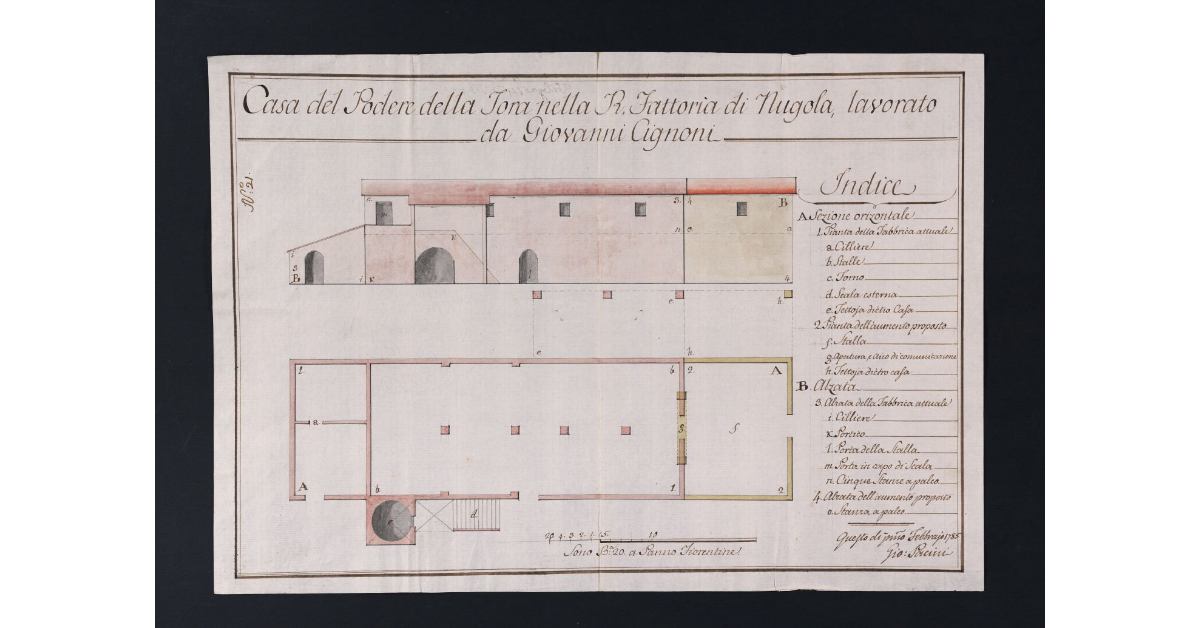 Casa del Podere della Tora nella R. Fattoria di Nugola, lavorato
da Giovanni Cignoni
N.° 21.
Indice
A Sezione orizontale
1. Pianta della Fabbrica attuale
a. Cilliere
b. Stalle
c. Forno
d. Scala esterna
e. Tettoja dietro Casa
2. Pianta dell'aumento proposto
f. Stalla
g. Apertura, e Arco di comunicazione
h. Tettoja dietro casa
B. Alzata
3. Alzata della Fabbrica attuale
i. Cilliere
K Portico
l. Porta della Stalla
m. Porta in capo di Scala
n. Cinque Stanze a palco
4. Alzata dell'aumento proposto
o. Stanza a palco
Questo dì pmo Febbrajo 1785
Gio: Pacini
3. 4 B
n o o
i
3
B i K 4
e h
e h
1. b 2. A
a
g. f
A b 1. 2
d.
20 4. 3. 2. 1. 5. 10
Sono Ba. 20. a Panno Fiorentine